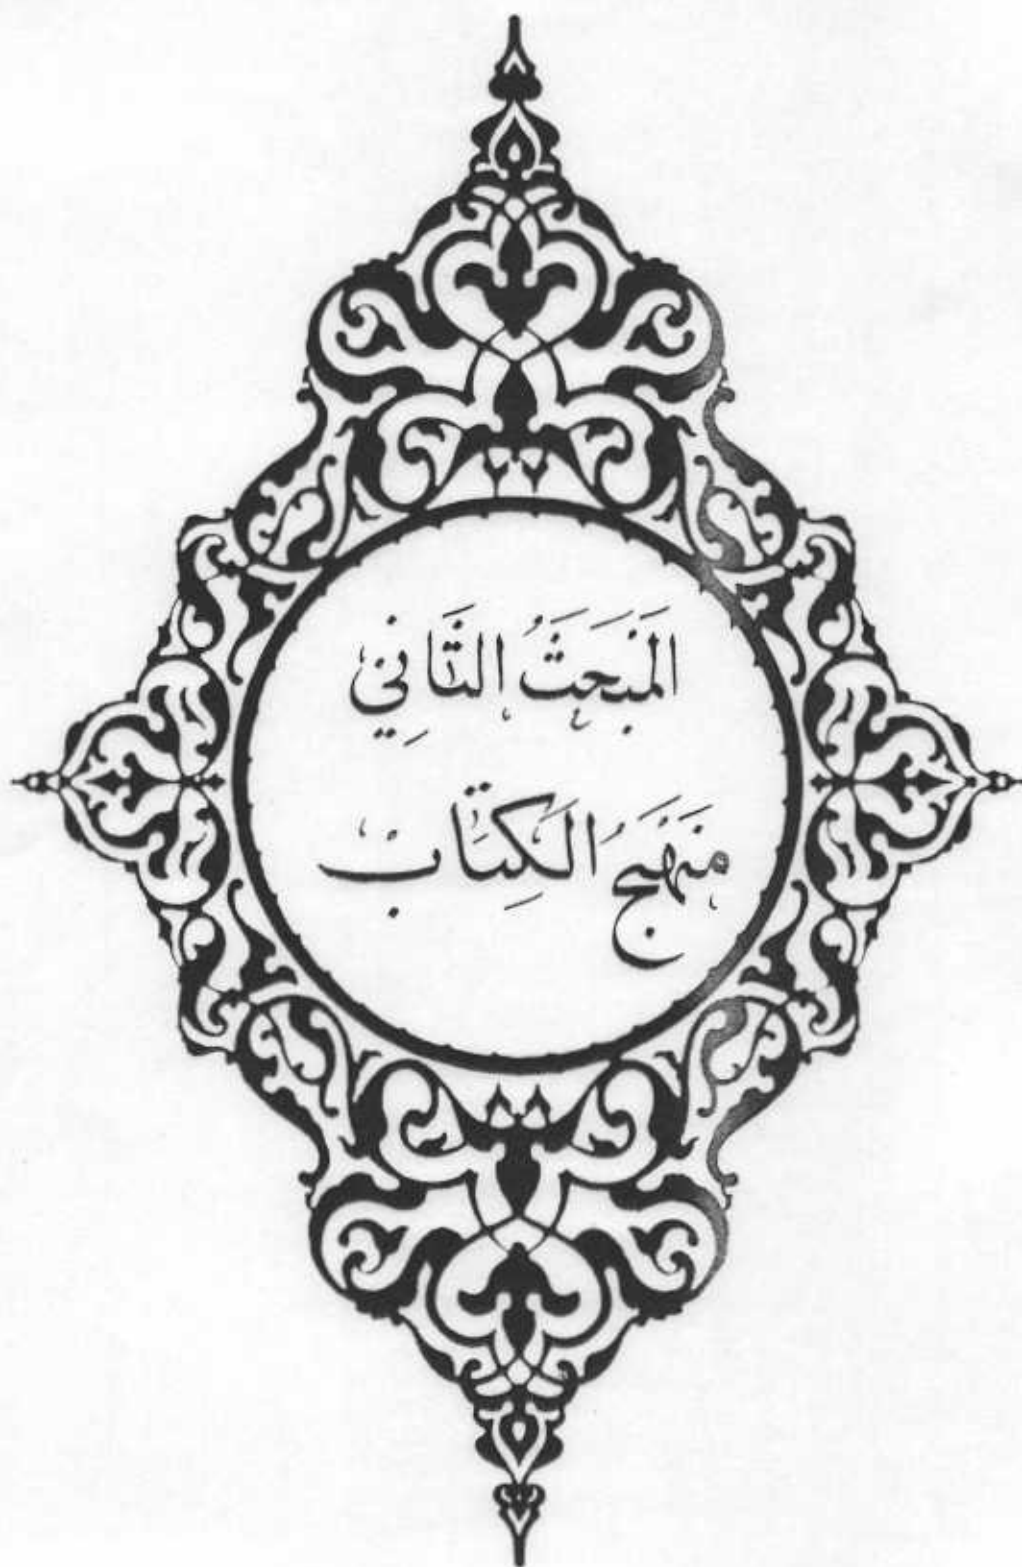 المَبْحَثُ الثَّانِي
مَنْهَجُ الكِتَاب